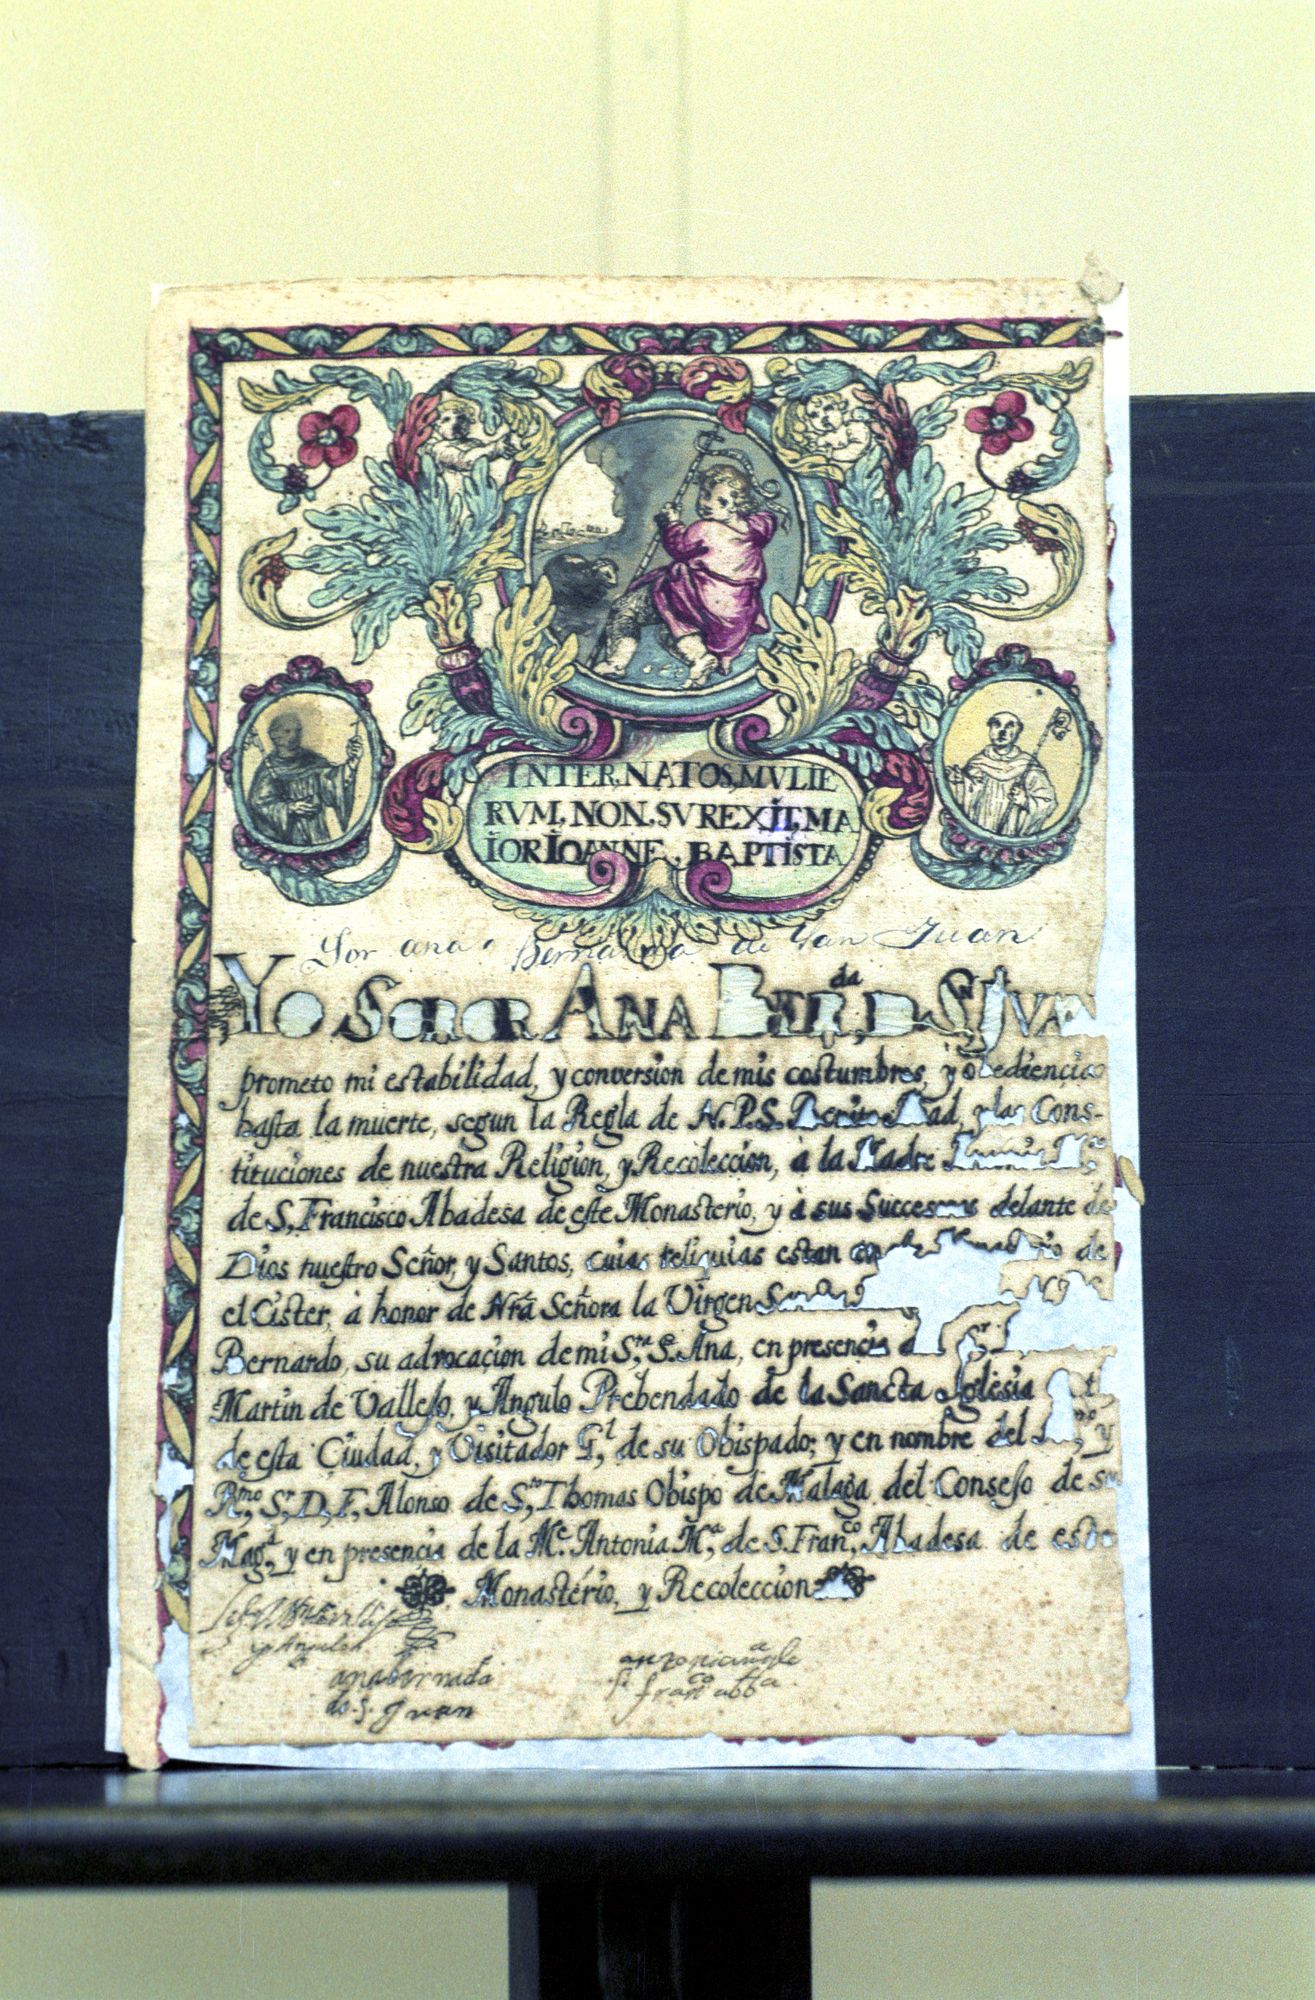 INTER,NATOS,MVLIE
RVM,NON,SVREXIT,MA
IOR IOANNE, BAPTISTA
Sor ana Bernarda de San Juan
YO SOROR ANA BER,da D SILVA
prometo mi estabilidad, y conversion de mis costumbres, y obediencia
hasta la muerte, segun la Regla de N.P.S. Abad, y las Cons-
tituciones de nuestra Religion, y Recoleccion, à la Madre
de S, Francisco Abadesa de este Monasterio, y à sus Successoras delante de
Dios nuestro Señor, y Santos, cuias reliquias estan de
el Cister, à honor de Nrã Señora la Virgen
Bernardo, su advocaçion de mi S,ra S, Ana, en presencia
Martin de Vallejo, y Angulo Prebendado de la Sancta Iglesia
de esta Ciudad, y Visitador G,l de su Obispado; y en nombre del y
R,mo S,r D, F, Alonso de S,to Thomas Obispo de Malaga del Consejo de su
Mag,d y en presencia de la M,e Antonia M,a de S. Fran,co Abadesa de este
Monastério, y Recoleccion
y Angulo
ana bernada
de S. Juan
franco abba